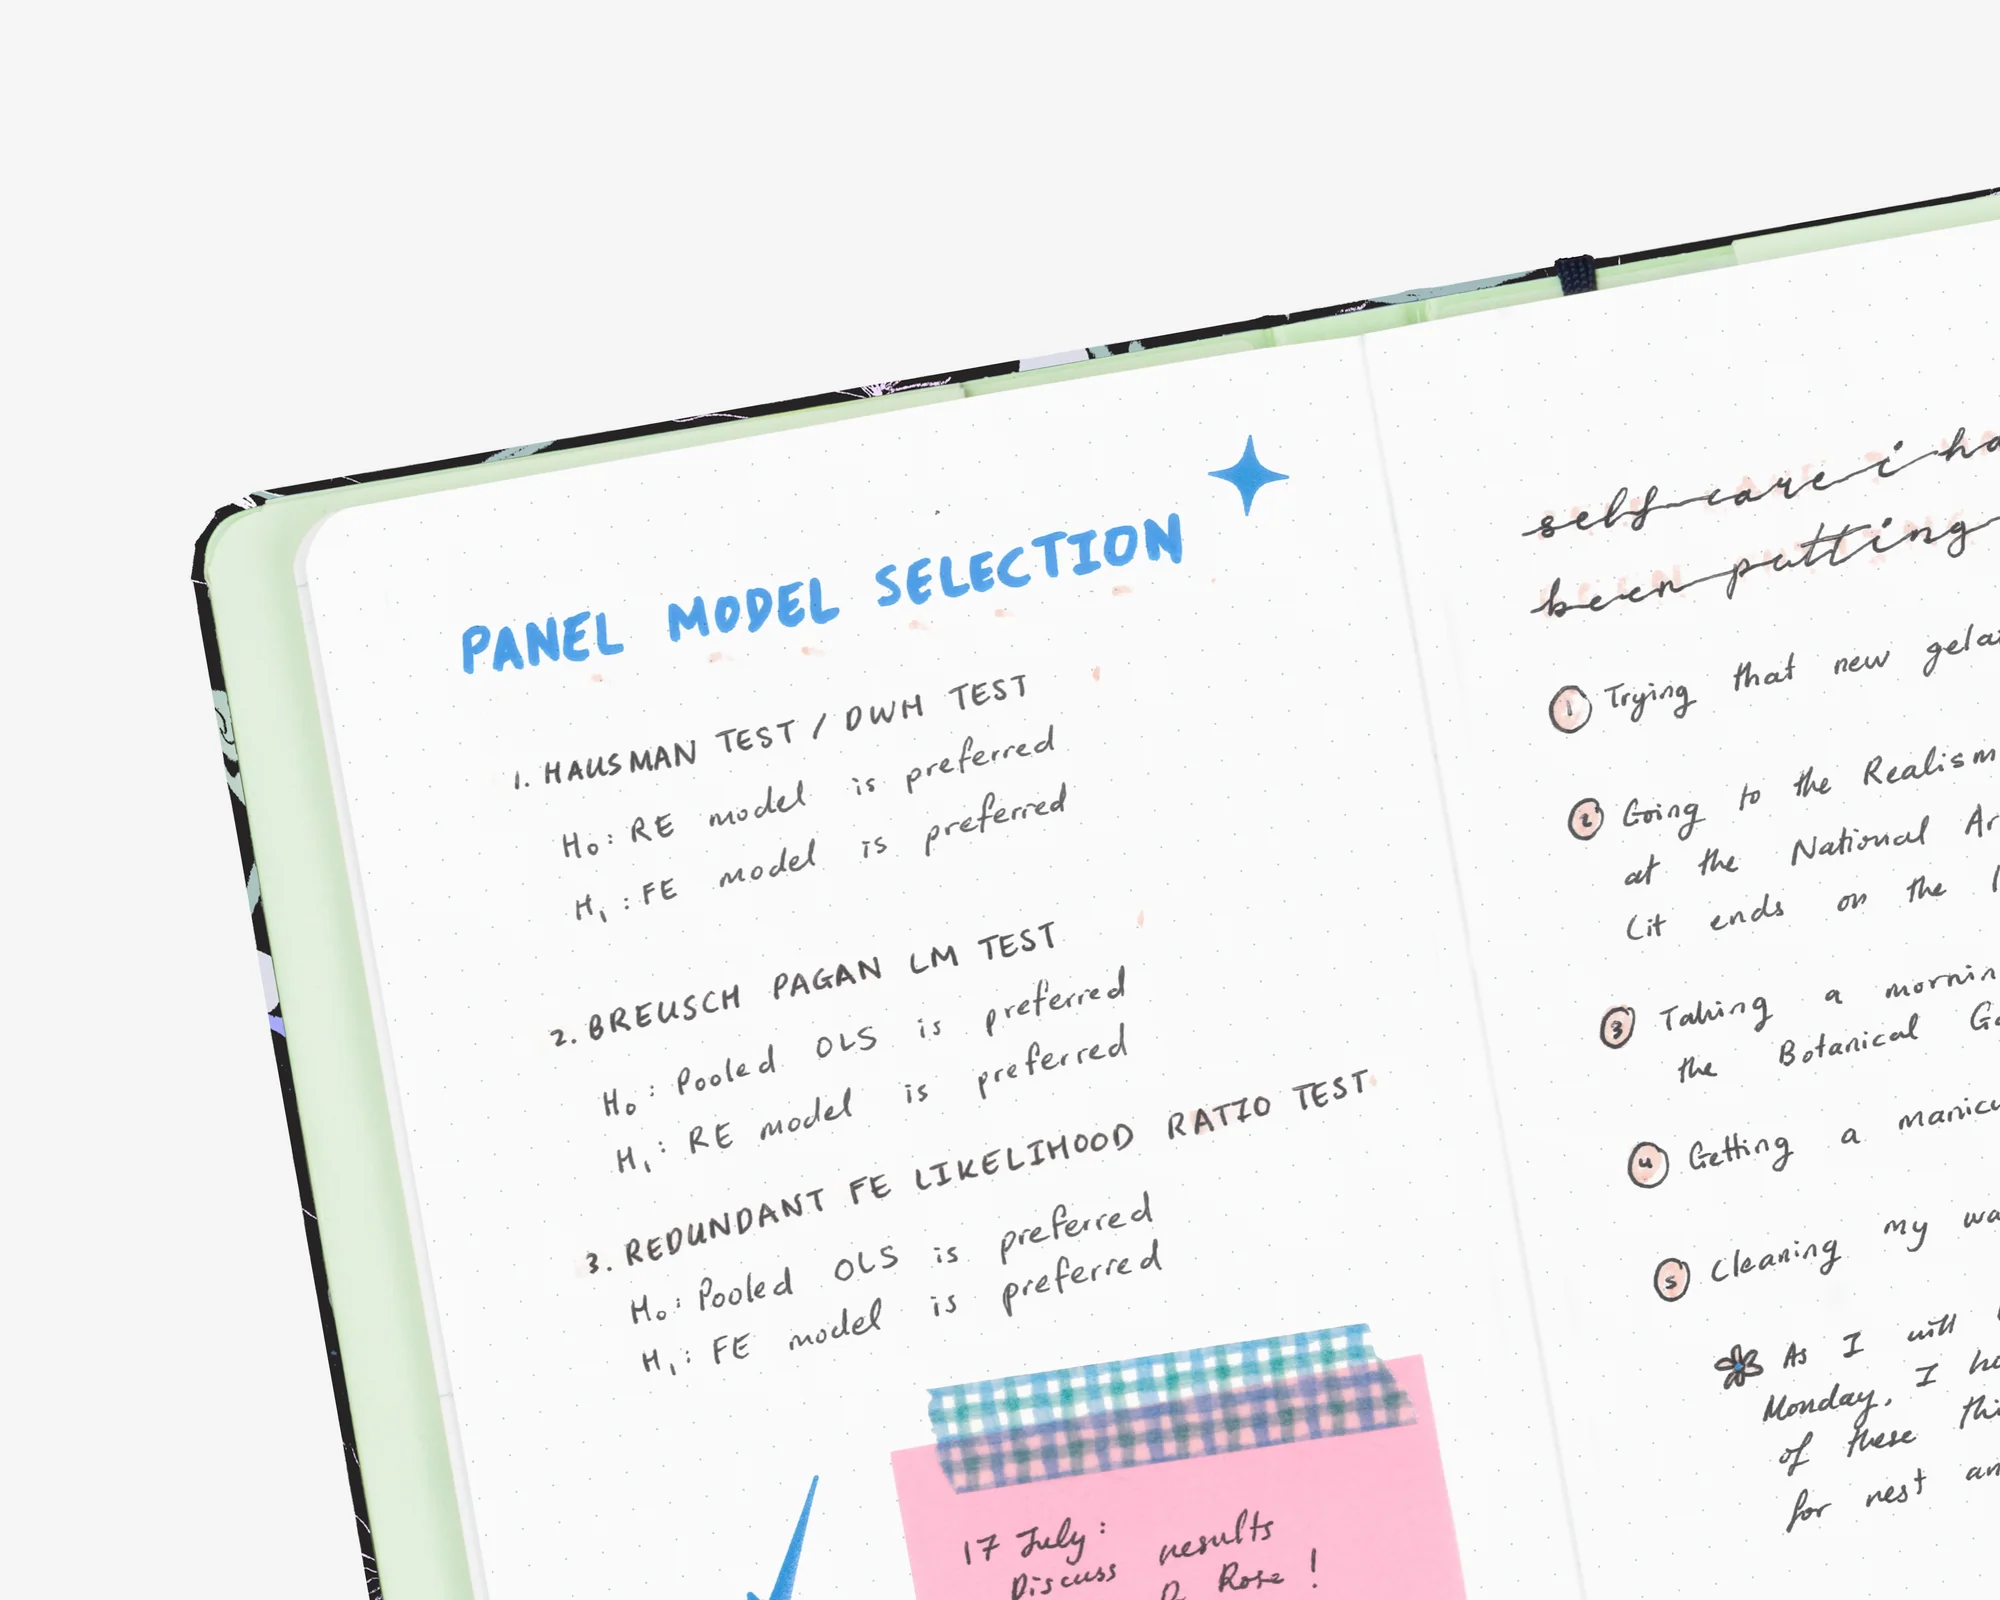 PANEL MODEL SELECTION
1. HAUSMAN TEST / DWH TEST
H₀: RE model is preferred
H₁: FE model is preferred
2. BREUSCH PAGAN LM TEST
H₀: Pooled OLS is preferred
H₁: RE model is preferred
3. REDUNDANT FE LIKELIHOOD RATIO TEST
H₀: Pooled OLS is preferred
H₁: FE model is preferred
17 July:
Discuss results
Rose!
self-care i
been putting
1 Trying that new
2 Going to the Realism
at the National
(it ends on the
3 Taking a
the Botanical
4 Getting a
5 Cleaning my
As I will
Monday, I
of these
for rest